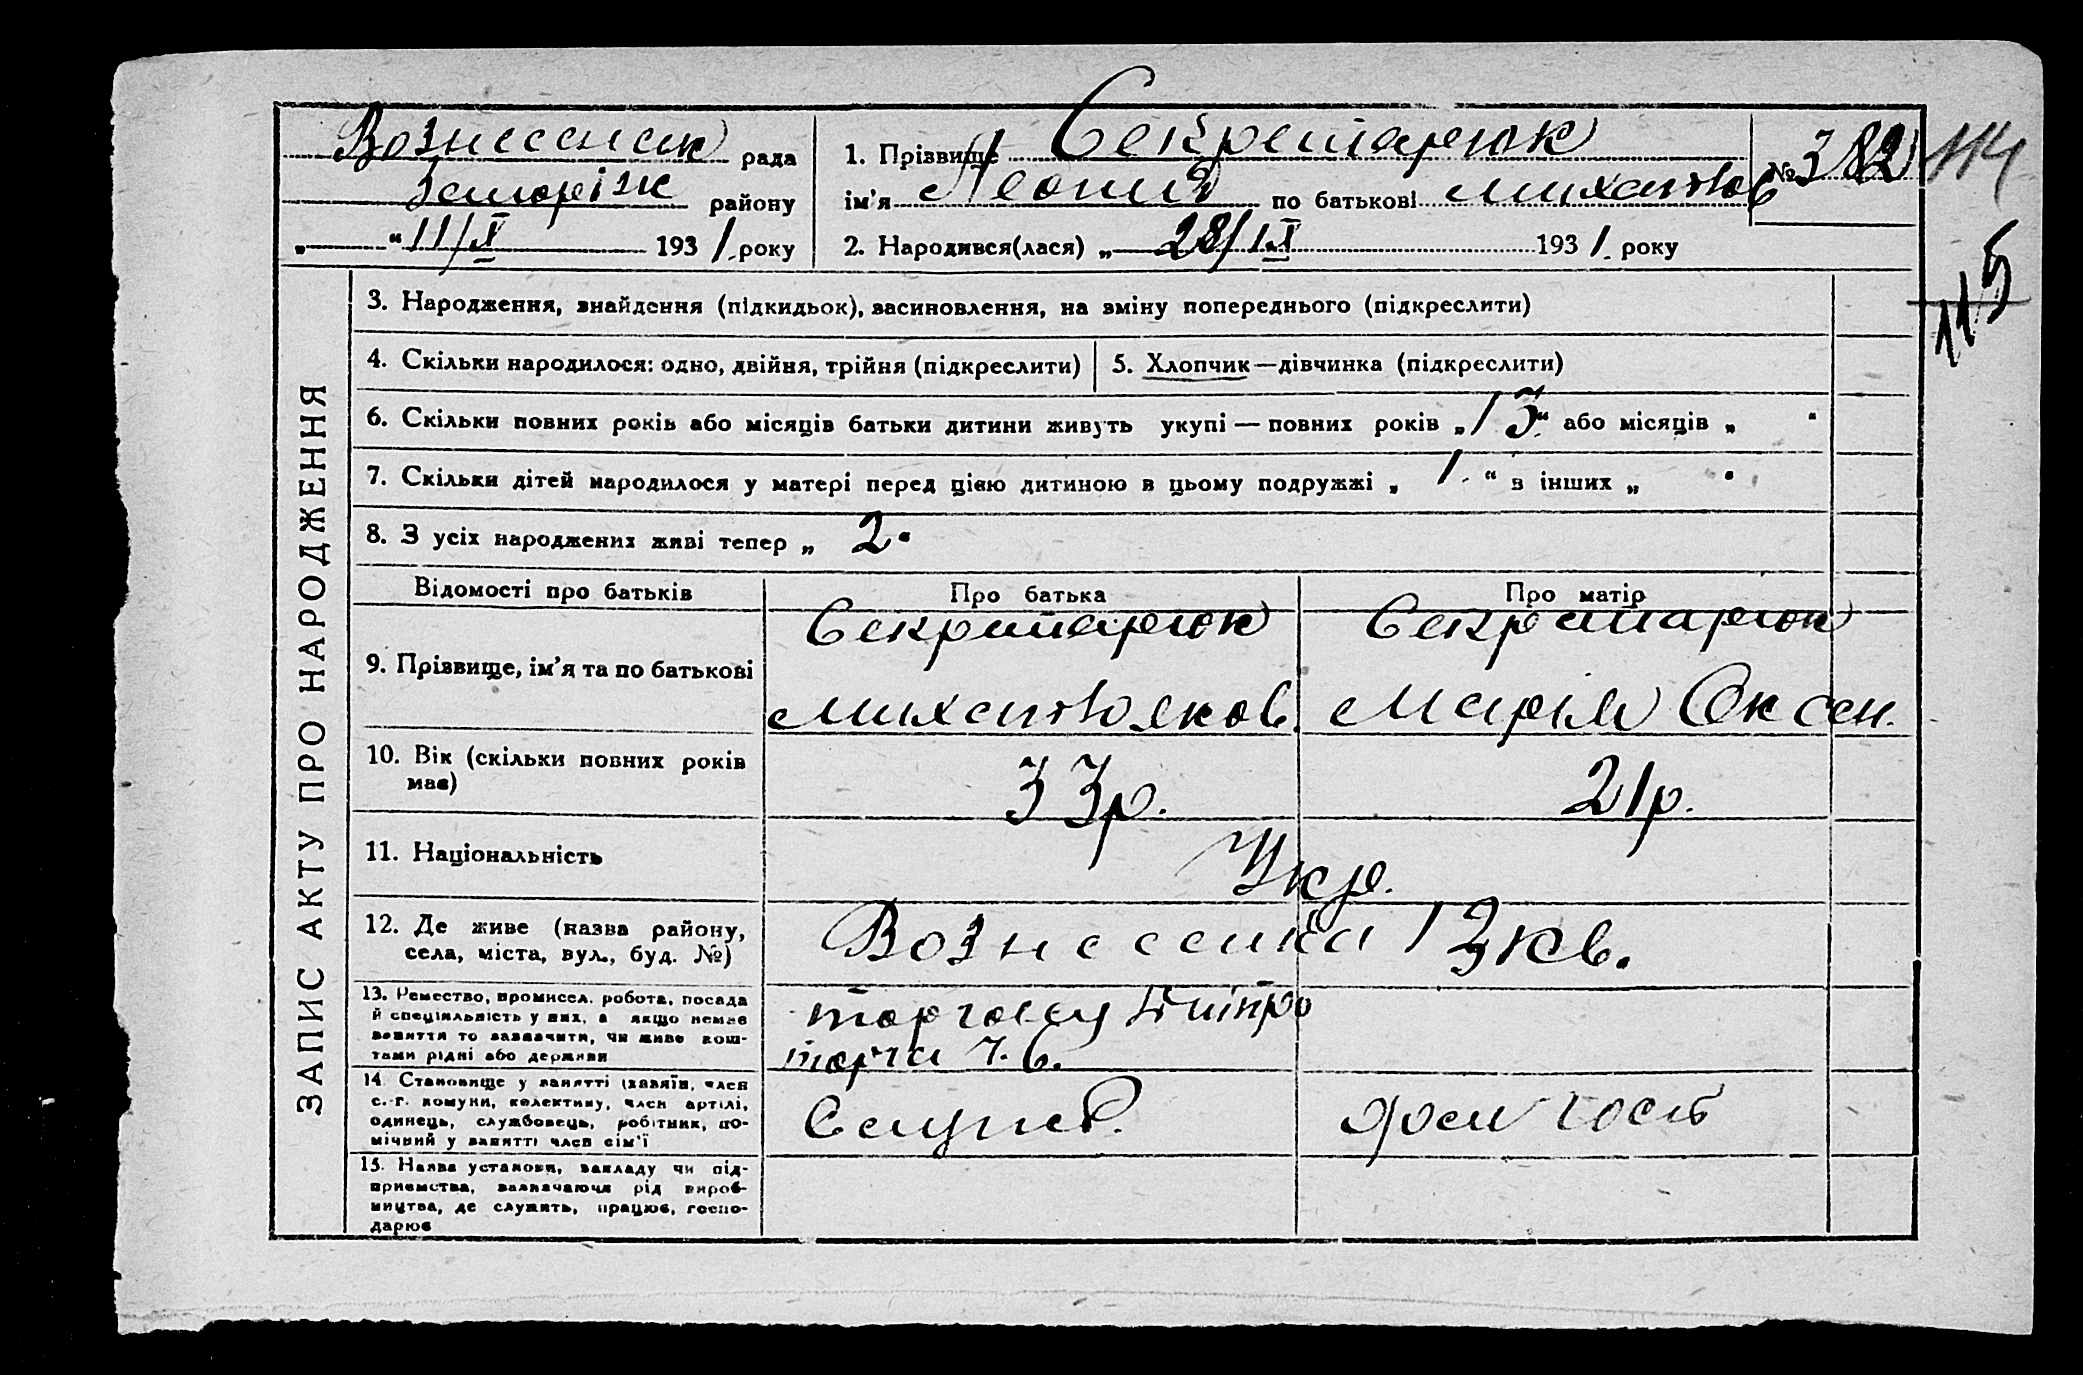 Вознесенск рада
Запоріж району
„ “ 11/X 1931. року
1. Прізвище Секретарюк
ім'я Леонид по батькові Михайлов
№ 382
114
2. Народився(лася) „ 28/IX 1931. року
115
ЗАПИС АКТУ ПРО НАРОДЖЕННЯ
3. Народження, знайдення (підкидьок), засиновлення, на зміну попереднього (підкреслити)
4. Скільки народилося: одно, двійня, трійня (підкреслити)
5. Хлопчик—дівчинка (підкреслити)
6. Скільки повних років або місяців батьки дитини живуть укупі — повних років „ 13 “ або місяців „ “
7. Скільки дітей народилося у матері перед цією дитиною в цьому подружжі „ 1. “ в інших „ “
8. З усіх народжених живі тепер „ 2 “
Відомості про батьків Про батька Про матір
9. Прізвище, ім'я та по батькові
Секритарюк
Михайло Яков.
Секретарюк
Марія Оксен.
10. Вік (скільки повних років
має)
33р. 21р.
11. Національність Укр.
12. Де живе (назва району,
села, міста, вул., буд. №)
Вознесенка 13 кв.
13. Ремество, промисел, робота, посада
й спеціяльність у них, а якщо немає
заняття то зазначити, чи живе кош-
тами рідні або держави
Дніпро
14. Становище у занятті (хазяїн, член
с.-г. комуни, колективу, член артілі,
одинець, службовець, робітник, по-
мічний у занятті член сім'ї
15. Назва установи, закладу чи під-
приємства, зазначаючи рід вироб-
ництва, де служить, працює, госпо-
дарює